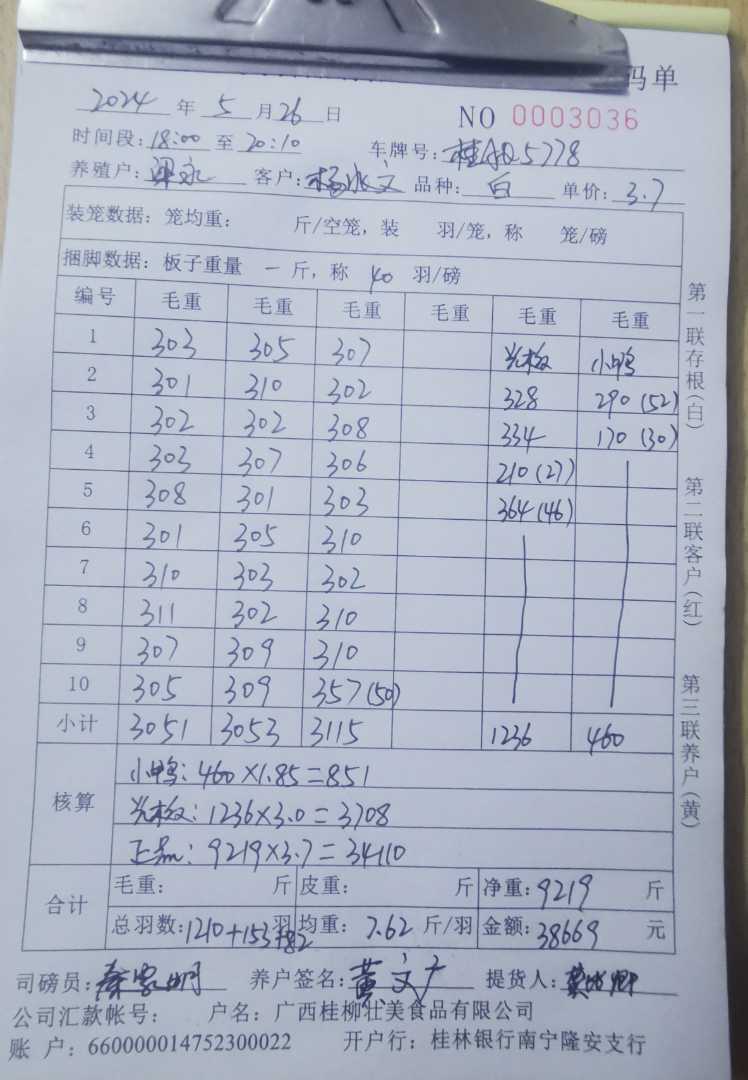 码单
2024 年 5 月 26 日 NO 0003036
时间段: 18:00 至 20:10 车牌号: 桂AQ5778
养殖户: 梁永 客户: 杨水文 品种: 白 单价: 3.7
装笼数据: 笼均重: 斤/空笼, 装 羽/笼, 称 笼/磅
捆脚数据: 板子重量 一 斤, 称 40 羽/磅
编号 毛重 毛重 毛重 毛重 毛重 毛重
1 303 305 307 光板 小鸭
2 301 310 302 328 290 (52)
3 302 302 308 334 170 (30)
4 303 307 306 210 (27)
5 308 301 303 364 (46)
6 301 305 310
7 310 303 302
8 311 302 310
9 307 309 310
10 305 309 357 (50)
小计 3051 3053 3115 1236 460
核算
小鸭: 460×1.85=851
光板: 1236×3.0=3708
正品: 9219×3.7=34110
合计
毛重: 斤 皮重: 斤 净重: 9219 斤
总羽数: 1210+153+82 羽 均重: 7.62 斤/羽 金额: 38669 元
司磅员: 养户签名: 黄文广 提货人:
公司汇款帐号: 户名: 广西桂柳壮美食品有限公司
账 户: 660000014752300022 开户行: 桂林银行南宁隆安支行
第一联存根(白)
第二联客户(红)
第三联养户(黄)